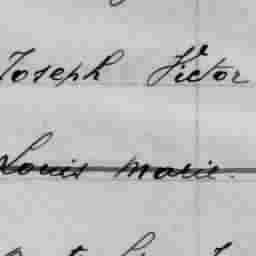 Joseph Victor
Louis Marie